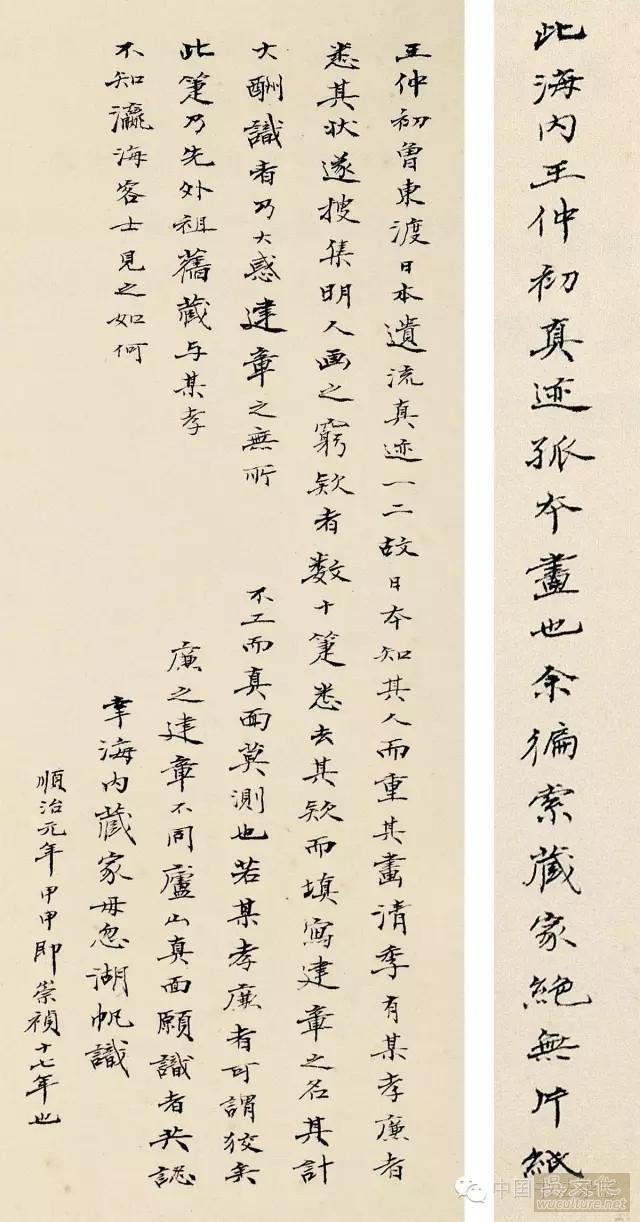 此海内王仲初真迹孤本畫也余徧索藏家絶無片紙
王仲初魯東渡日本遺流真迹一二故日本知其人而重其畫清季有某孝廉者
悉其状遂搜集明人画之窮欵者数十箑悉去其欵而填寫建章之名其計
大酬識者乃大惑建章之無所不工而真面莫測也若某孝廉者可謂狡矣
此箑乃先外祖舊藏与某孝廉之建章不同廬山真面願識者共認
不知瀛海客士見之如何幸海内藏家毋忽湖帆識
順治元年甲申即崇禎十七年也
中国书
吴文化
www.wuculture.net